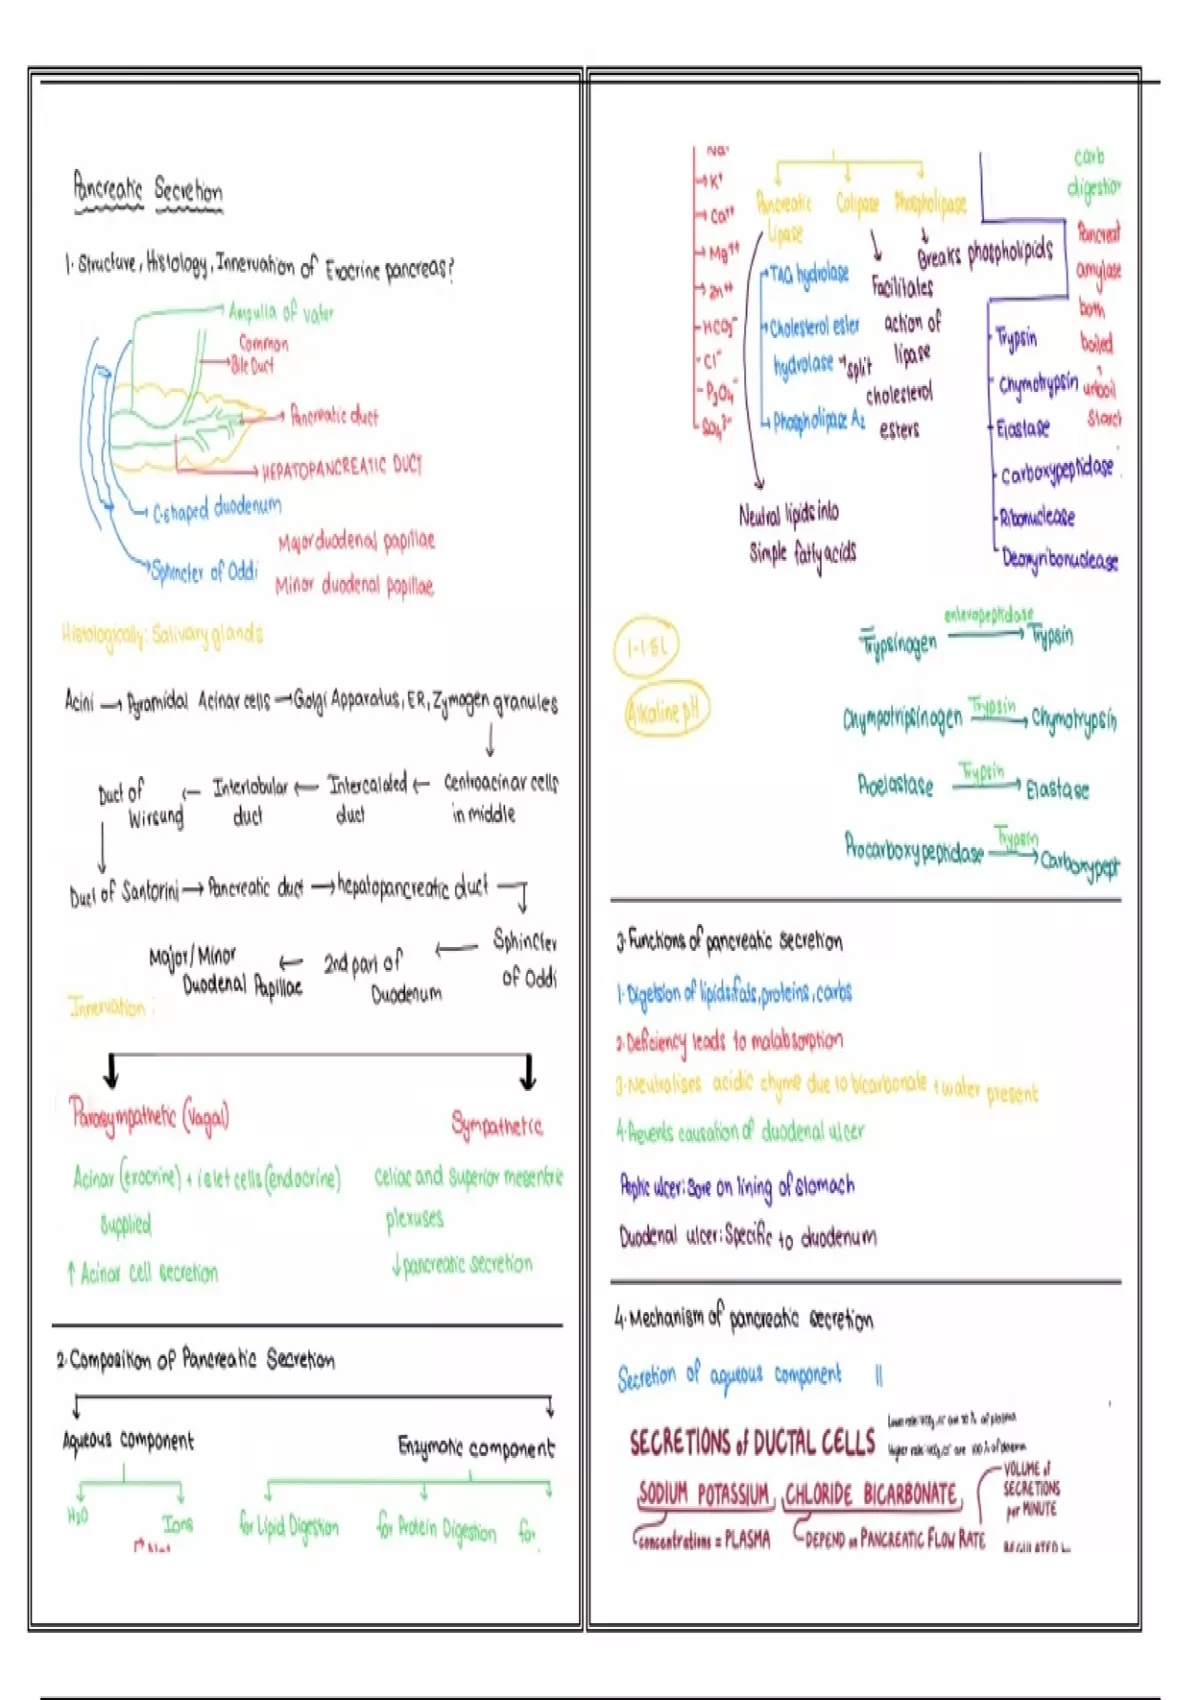 Pancreatic Secretion
1. Structure, Histology, Innervation of Exocrine pancreas?
Ampulla of vater
Common
Bile Duct
Pancreatic duct
HEPATOPANCREATIC DUCT
C-shaped duodenum
Major duodenal papillae
Sphincter of Oddi
Minor duodenal papillae
Histologically: Salivary glands
Acini → Pyramidal Acinar cells → Golgi Apparatus, ER, Zymogen granules
Duct of Wirsung ← Interlobular duct ← Intercalated duct ← Centroacinar cells in middle
Duct of Santorini → Pancreatic duct → hepatopancreatic duct
Major/Minor Duodenal Papillae ← 2nd part of Duodenum ← Sphincter of Oddi
Innervation:
Parasympathetic (Vagal)
Acinar (exocrine) + islet cells (endocrine)
supplied
↑ Acinar cell secretion
Sympathetic
celiac and superior mesentric
plexuses
↓ pancreatic secretion
2. Composition of Pancreatic Secretion
Aqueous component
Enzymatic component
H2O
Ions
for Lipid Digestion
for Protein Digestion
for
Na+
K+
Ca++
Mg++
Zn++
HCO3-
Cl-
SO4 2-
Pancreatic
Lipase
Colipase
Phospholipase
Breaks phospholipids
TAG hydrolase
Cholesterol ester
hydrolase → split
cholesterol
esters
Phospholipase A2
Facilitates
action of
lipase
Neutral lipids into
Simple fatty acids
carb
digestion
Pancreat
amylase
both
boiled
+
unboil
Starch
Trypsin
Chymotrypsin
Elastase
Carboxypeptidase
Ribonuclease
Deoxyribonuclease
1-1.5L
Alkaline pH
enteropeptidase
Trypsinogen → Trypsin
Trypsin
Chympotripsinogen → Chymotrypsin
Trypsin
Proelastase → Elastase
Trypsin
Procarboxypeptidase → Carboxypept
3. Functions of pancreatic secretion
2. Deficiency leads to malabsorption
3. Neutralises acidic chyme due to bicarbonate + water present
4. Prevents causation of duodenal ulcer
Peptic ulcer: Sore on lining of stomach
Duodenal ulcer: Specific to duodenum
4. Mechanism of pancreatic secretion
Secretion of aqueous component
SECRETIONS of DUCTAL CELLS
SODIUM POTASSIUM CHLORIDE BICARBONATE
concentrations = PLASMA
DEPEND on PANCREATIC FLOW RATE
VOLUME of
SECRETIONS
per MINUTE